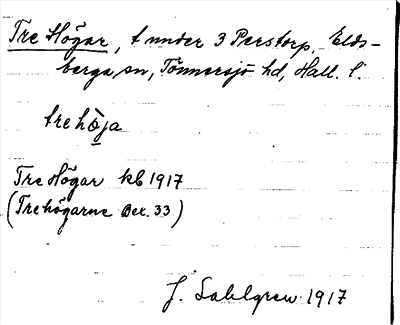 Tre Högar, t under 3 Perstorp, Elds-
berga sn, Tönnersjö hd, Hall. l.
tre hò̱ja
Tre Högar kb 1917
(Trehögarne Bex. 33)
J. Sahlgren 1917